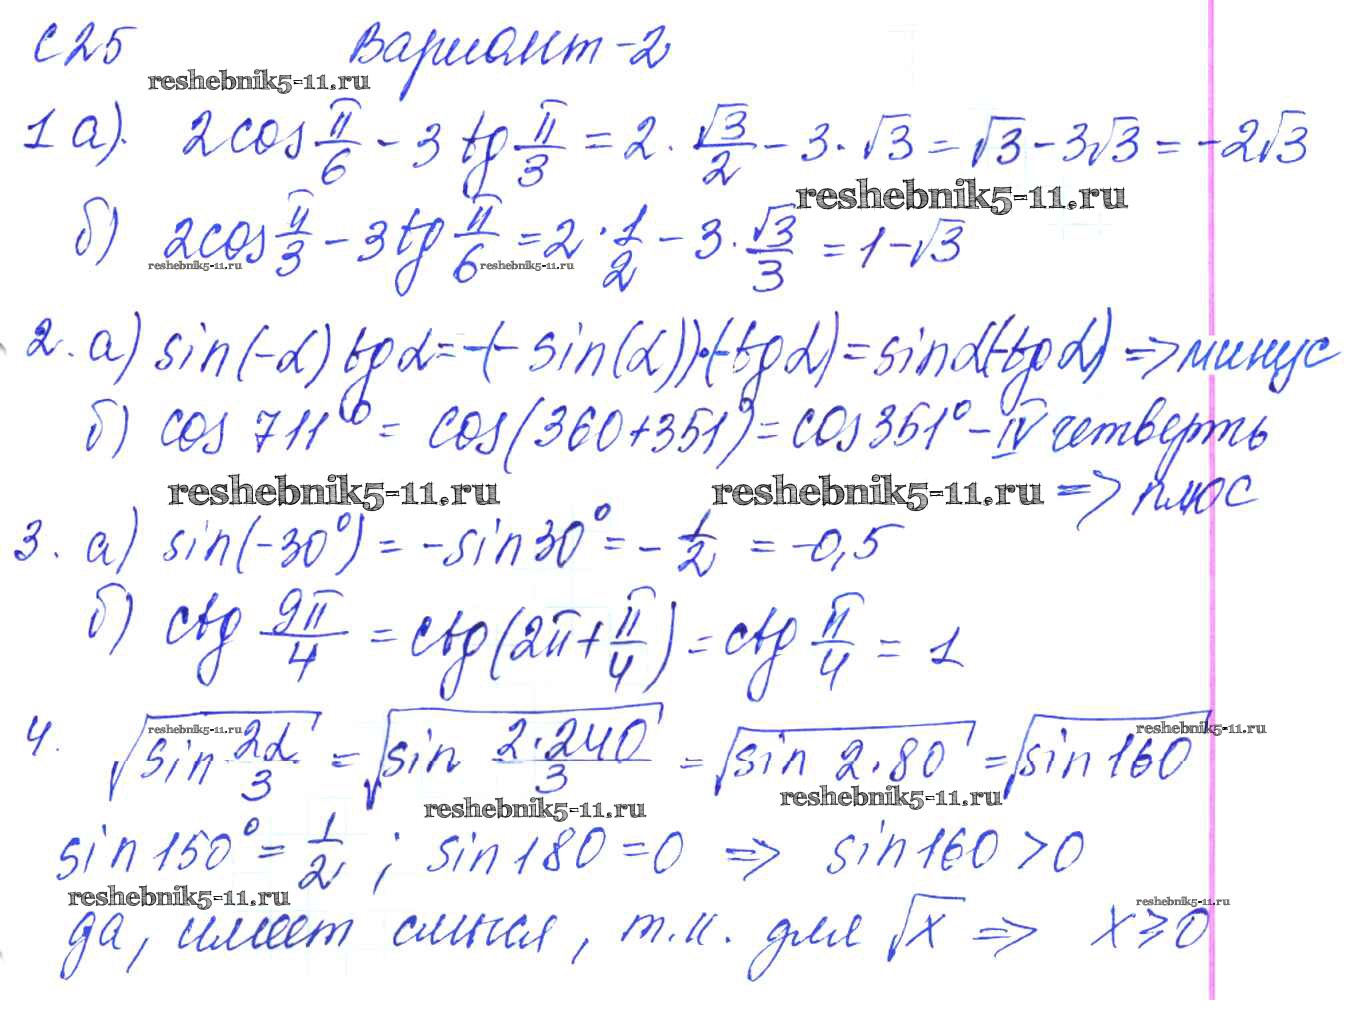 С25 Вариант-2
reshebnik5-11.ru
1 а). 2cos π/6 - 3 tg π/3 = 2 · √3/2 - 3 · √3 = √3 - 3√3 = -2√3
reshebnik5-11.ru
б) 2cos π/3 - 3 tg π/6 = 2 · 1/2 - 3 · √3/3 = 1 - √3
reshebnik5-11.ru reshebnik5-11.ru
2. а) sin(-α) tgα = -(- sin(α)) · (-tgα) = sinα(-tgα) => минус
б) cos 711° = cos(360+351°) = cos351° - IV четверть
reshebnik5-11.ru reshebnik5-11.ru => плюс
3. а) sin(-30°) = -sin30° = - 1/2 = -0,5
б) ctg 9π/4 = ctg(2π + π/4) = ctg π/4 = 1
reshebnik5-11.ru reshebnik5-11.ru
4. √sin 2α/3 = √sin 2·240/3 = √sin 2·80 = √sin160
reshebnik5-11.ru reshebnik5-11.ru
sin150° = 1/2 ; sin180 = 0 => sin160 > 0
reshebnik5-11.ru reshebnik5-11.ru
да, имеет смысл, т.к. для √x => x ≥ 0